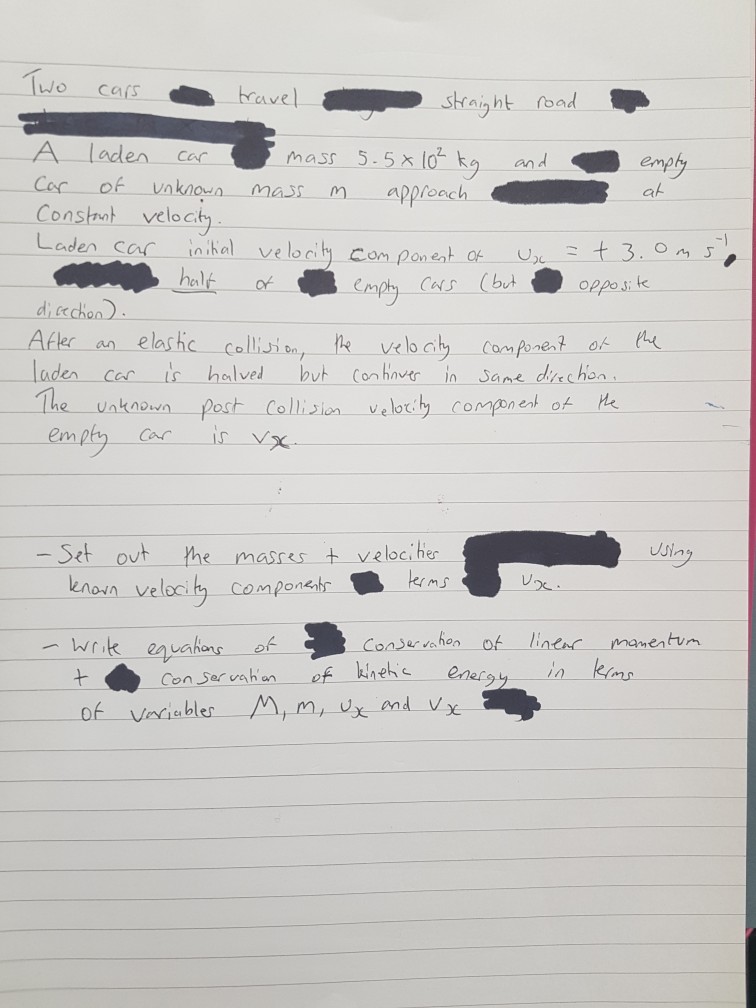 Two cars travel straight road
A laden car mass 5.5 × 10² kg and empty
Car of unknown mass m approach at
Constant velocity.
Laden car initial velocity component of uₓ = + 3.0 m s⁻¹,
half of empty cars (but opposite
direction).
After an elastic collision, the velocity component of the
laden car is halved but continues in same direction.
The unknown post collision velocity component of the
empty car is vx.
- Set out the masses + velocities using
known velocity components terms uₓ.
- Write equations of conservation of linear momentum
+ conservation of kinetic energy in terms
of variables M, m, uₓ and vₓ